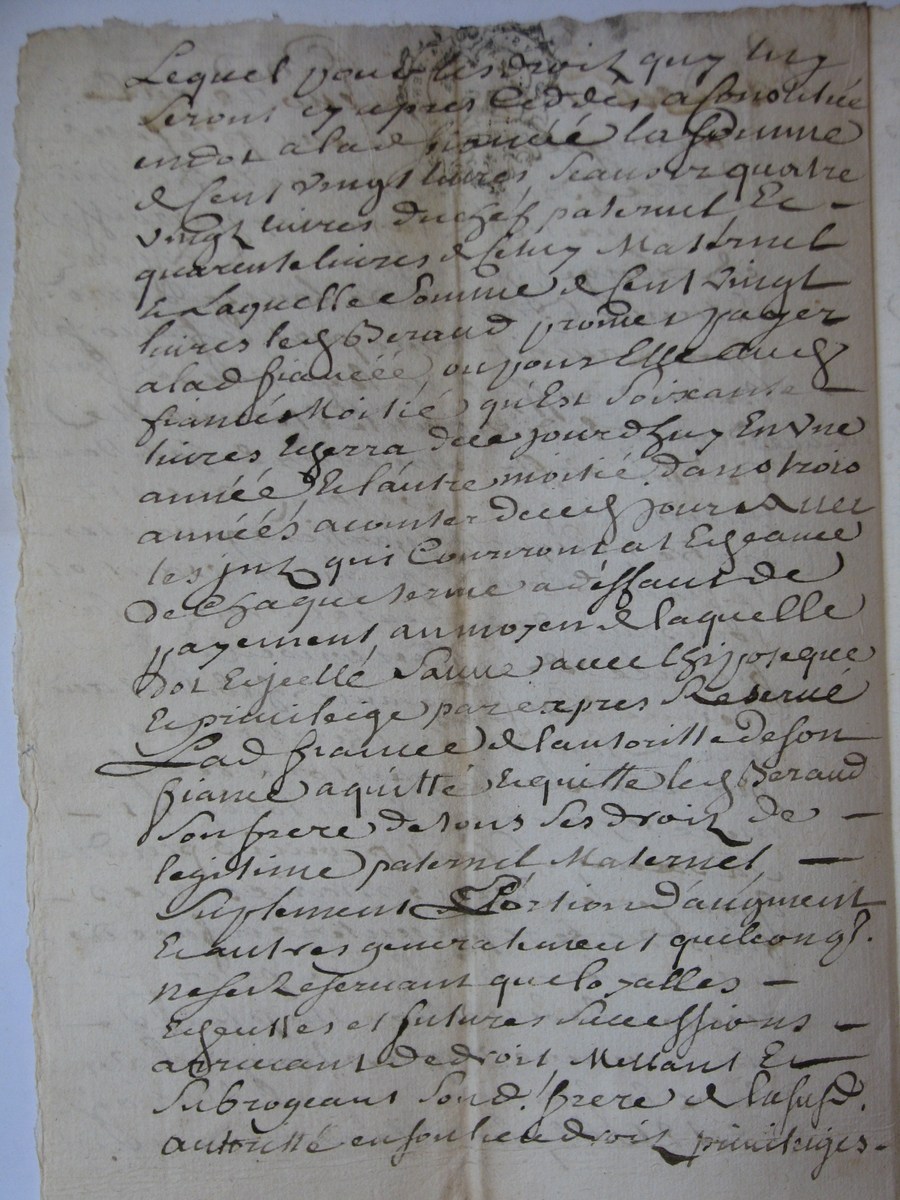 Lequel pour les droitz quy luy
seront cy apres Ceddes a Constitué
en dot a lad fiancée la somme
de Cent vingt livres scauoir quatre
vingt livres du chef paternel Et
quarente livres de Celuy Maternel
de Laquelle Somme de Cent vingt
livres led Beraud promet payer
a lad fiancée ou pour Elle aud
fiancé Moitié qu'Est soixante
livres d'huy En vne
année Et l'autre moitié dans trois
années a conter de ced jour Auec
les jntz qui Courront at Echeance
de Chaque terme a deffaut de
payement, au moyen de laquelle
dot Et jcelle Sauue auec l'hipoteque
Et priuileige par expres Reservé
Lad fiancée de l'autoritte de son
fiancé a quitté Et quitte led Beraud
son frere de tous ses droitz de
legitime paternel Maternel
suplement Portion d'augment
Et autres generalement quelconqs.
ne se Reservant que loyalles
Echeuttes et futures successions
arriuant de droit, Mettant Et
subrogeant sond. frere de la susd.
autoritté en son lieu droitz priuileiges